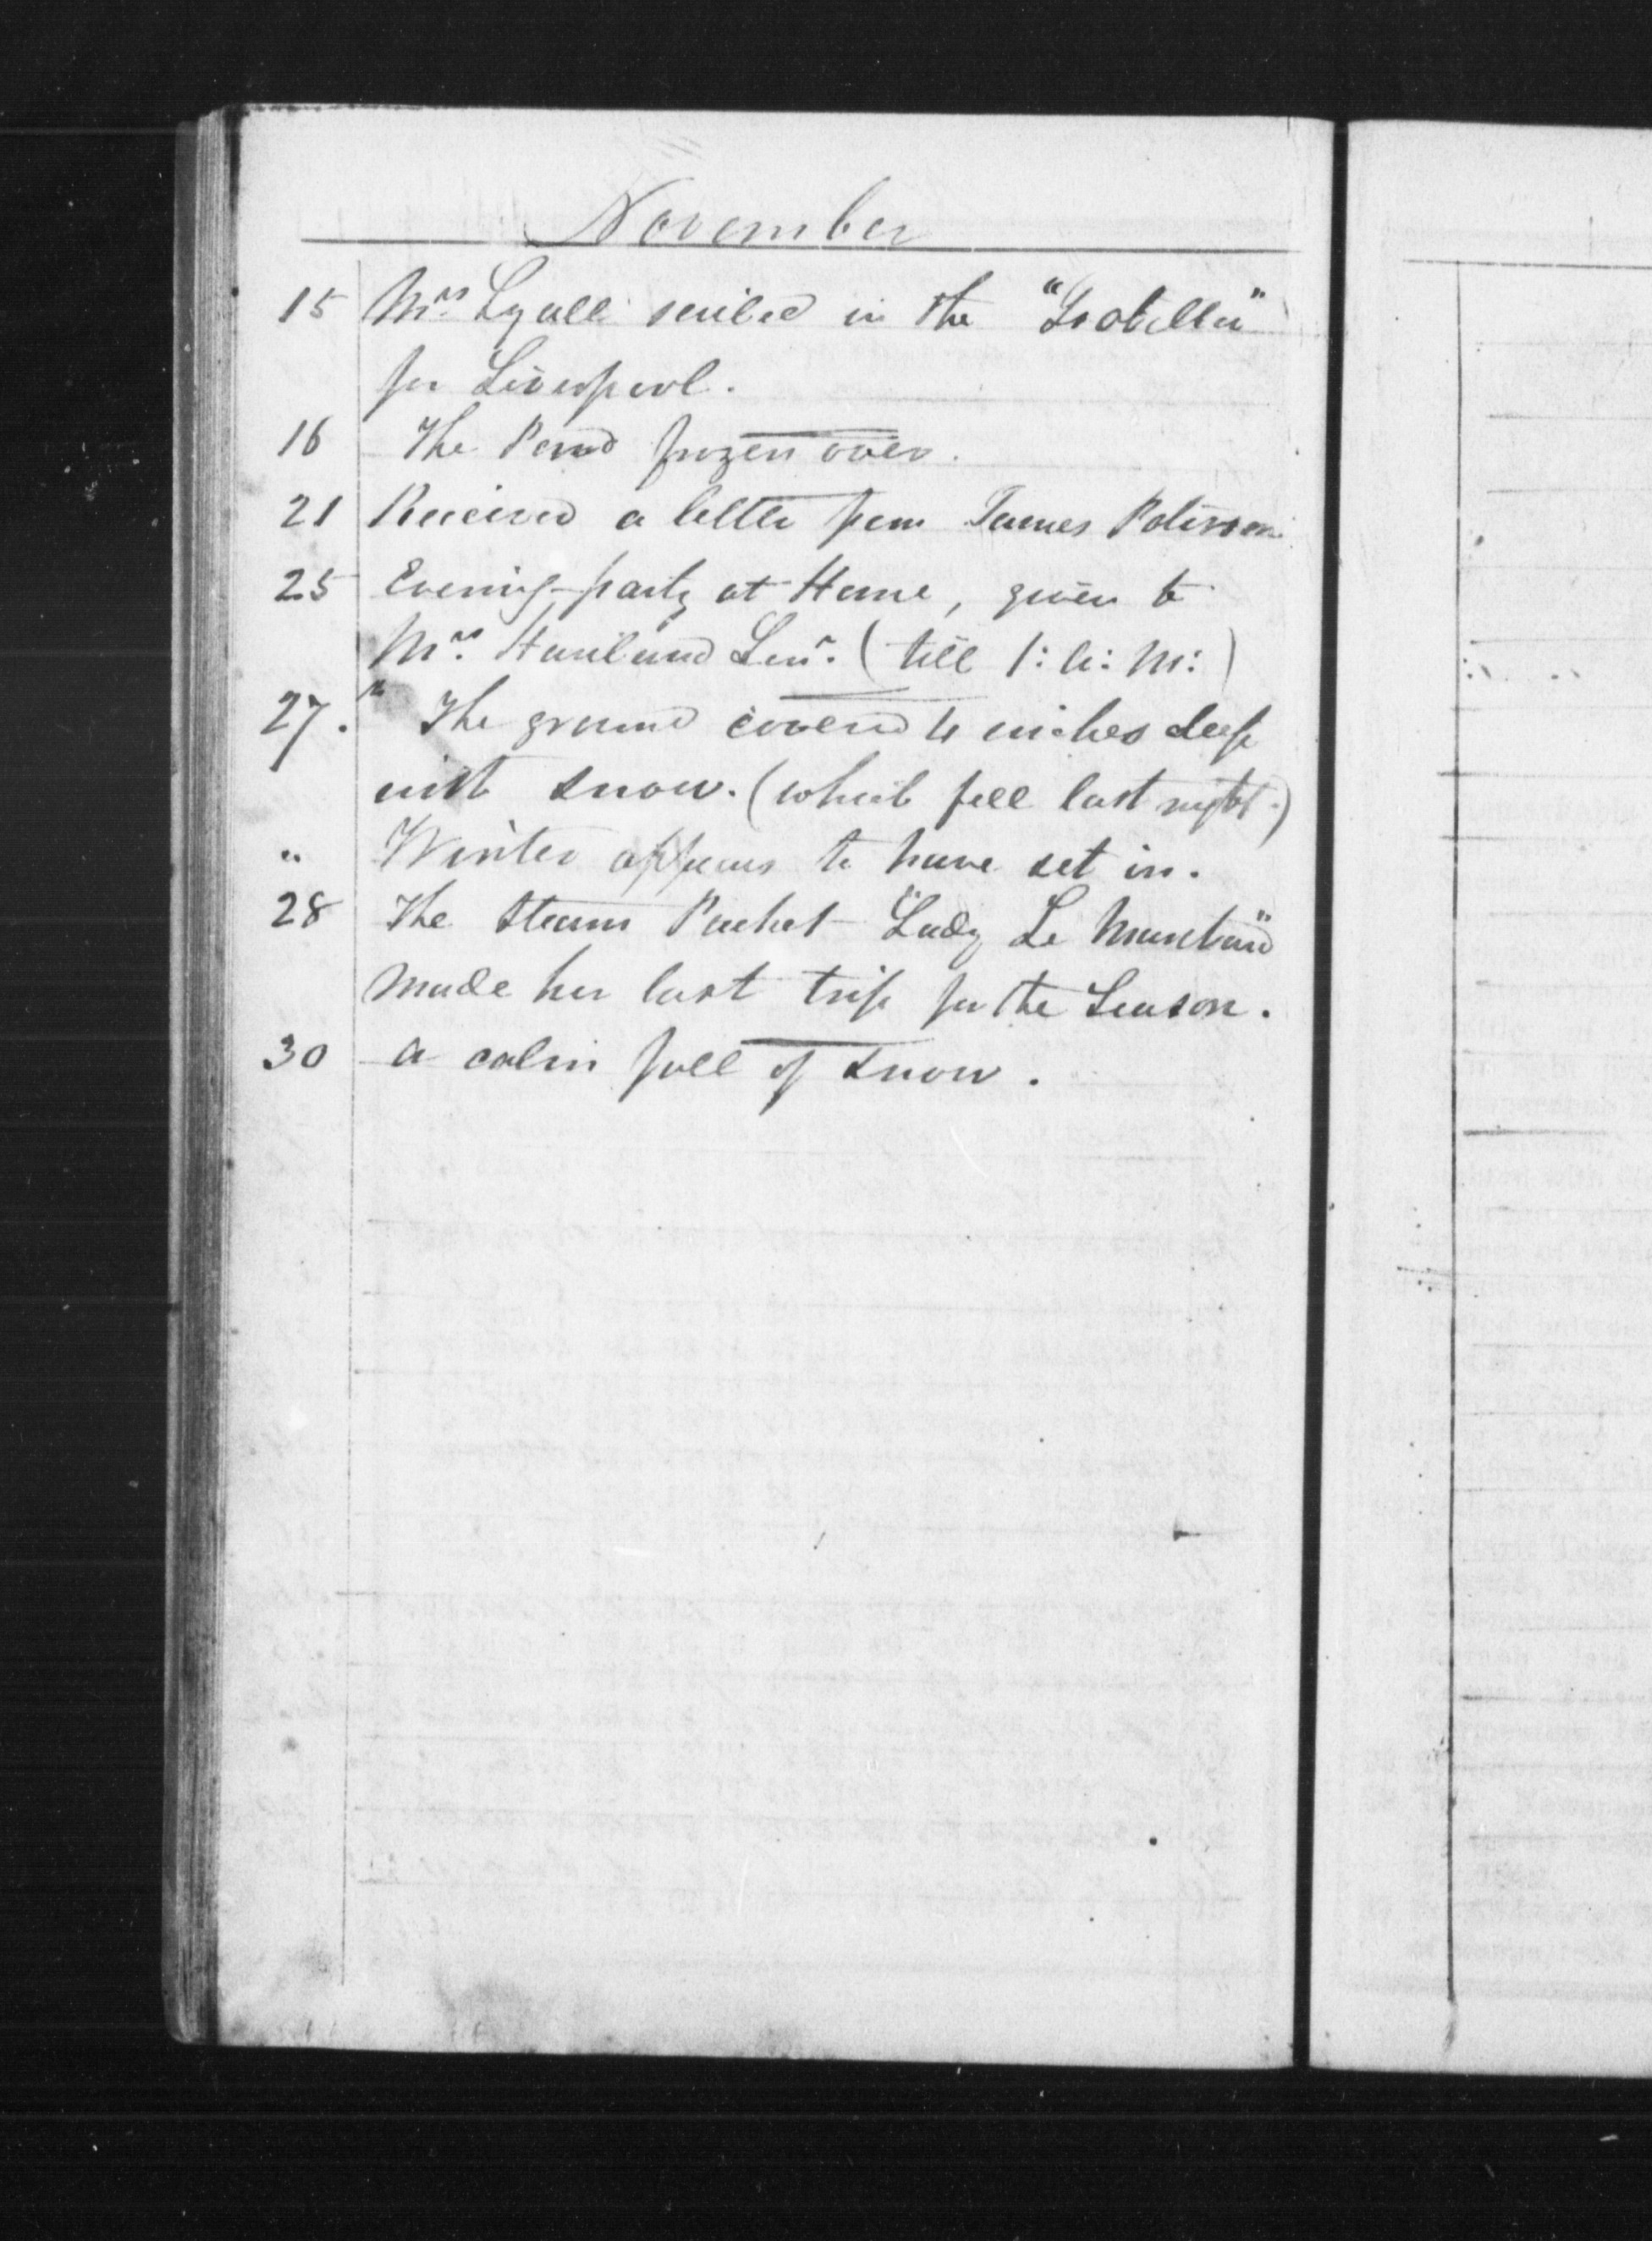 November
15 Mrs. Lyall sailed in the "Isabella"
for Liverpool.
16 The Pond frozen over.
21 Received a letter from James
25 Evening-party at Home, given to
Mrs. Haviland Senr. (till 1: A: M:)
27. The ground covered 4 inches deep
with snow. (which fell last night.)
" Winter appears to have set in.
28 The Steam Packet "Lady Le Marchant"
made her last trip for the Season.
30 A calm fall of snow.